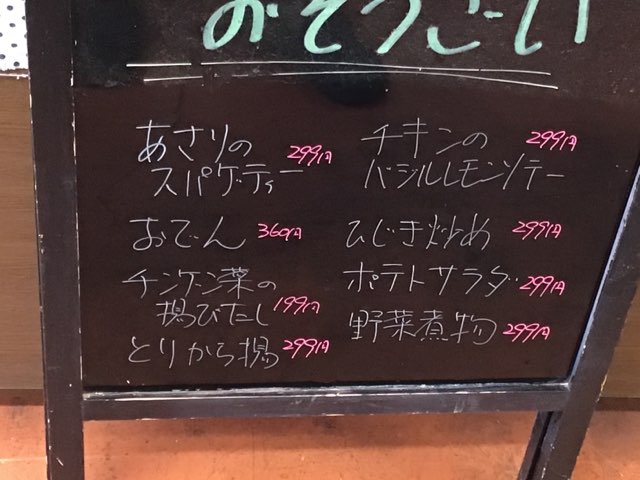 おそうざい
あさりの
スパゲティー 299円
おでん 360円
チンゲン菜の
揚びたし 199円
とりから揚 299円
チキンの 299円
バジルレモンソテー
ひじき炒め 299円
ポテトサラダ 299円
野菜煮物 299円